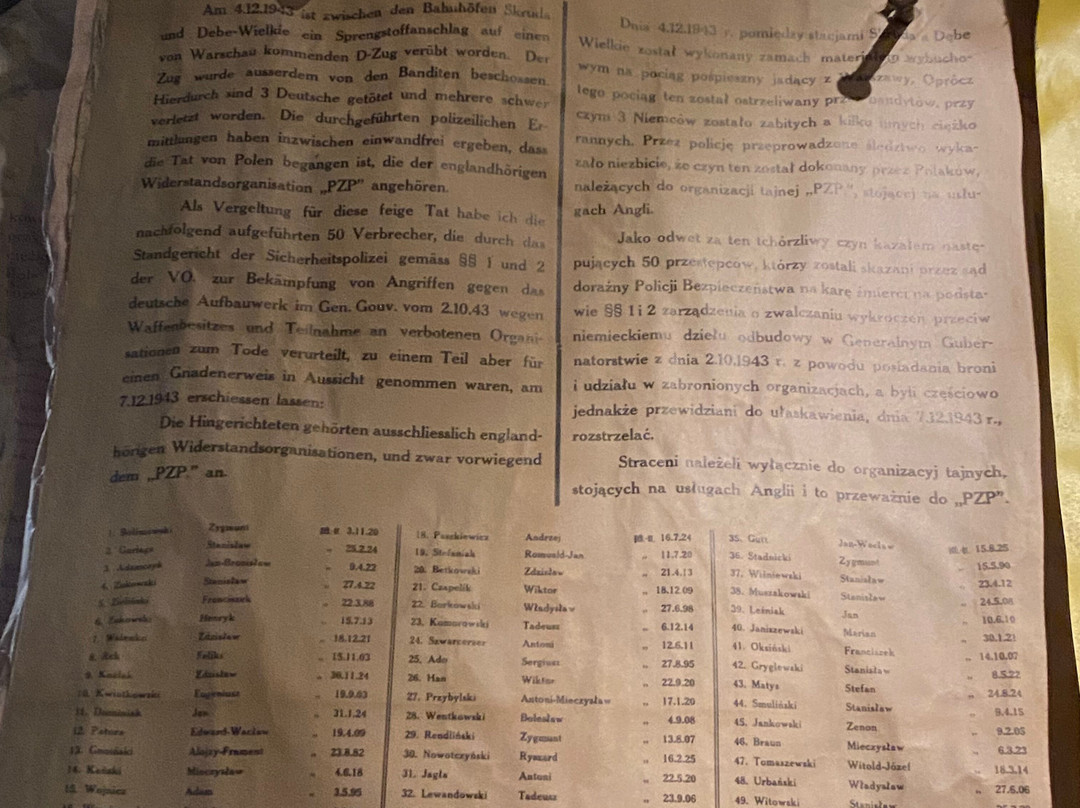 Am 4.12.1943 ist zwischen den Bahnhöfen Skruda
und Debe-Wielkie ein Sprengstoffanschlag auf einen
von Warschau kommenden D-Zug verübt worden. Der
Zug wurde ausserdem von den Banditen beschossen.
Hierdurch sind 3 Deutsche getötet und mehrere schwer
verletzt worden. Die durchgeführten polizeilichen Er-
mittlungen haben inzwischen einwandfrei ergeben, dass
die Tat von Polen begangen ist, die der englandhörigen
Widerstandsorganisation „PZP" angehören.
Als Vergeltung für diese feige Tat habe ich die
nachfolgend aufgeführten 50 Verbrecher, die durch das
Standgericht der Sicherheitspolizei gemäss §§ 1 und 2
der VO. zur Bekämpfung von Angriffen gegen das
deutsche Aufbauwerk im Gen. Gouv. vom 2.10.43 wegen
Waffenbesitzes und Teilnahme an verbotenen Organi-
sationen zum Tode verurteilt, zu einem Teil aber für
einen Gnadenerweis in Aussicht genommen waren, am
7.12.1943 erschiessen lassen:
Die Hingerichteten gehörten ausschliesslich england-
hörigen Widerstandsorganisationen, und zwar vorwiegend
dem „PZP." an.
Dnia 4.12.1943 r. pomiędzy stacjami a Dębe
Wielkie został wykonany zamach wybucho-
wym na pociąg pośpieszny jadący z Warszawy, Oprócz
tego pociąg ten został ostrzeliwany bandytów, przy
czym 3 Niemców zostało zabitych a kilku innych ciężko
rannych. Przez policję przeprowadzone śledztwo wyka-
zało niezbicie, że czyn ten został dokonany przez Polaków,
należących do organizacji tajnej „PZP.", stojącej na usłu-
gach Angli.
Jako odwet za ten tchórzliwy czyn kazałem nastę-
pujących 50 przestępców, którzy zostali skazani przez sąd
doraźny Policji Bezpieczeństwa na karę śmierci na podsta-
wie §§ 1 i 2 zarządzenia o zwalczaniu wykroczeń przeciw
niemieckiemu dziełu odbudowy w Generalnym Guber-
natorstwie z dnia 2.10.1943 r. z powodu posiadania broni
i udziału w zabronionych organizacjach, a byli częściowo
jednakże przewidziani do ułaskawienia, dnia 7.12.1943 r.,
rozstrzelać.
Straceni należeli wyłącznie do organizacyj tajnych,
stojących na usługach Anglii i to przeważnie do „PZP".
1. Zygmunt 3.11.20
2. Stanisław „ 25.2.24
3. Adamczyk Jan-Bronisław „ 9.4.22
4. Stanisław „ 27.4.22
5. Franciszek „ 22.3.88
6. Henryk „ 15.7.13
7. Zdzisław „ 16.12.21
8. Feliks „ 15.11.03
9. Zdzisław „ 30.11.24
10. Kwiatkowski Eugeniusz „ 19.9.03
11. Dominiak Jan „ 31.1.24
12. Patora Edward-Wacław „ 19.4.09
13. Alojzy-Frament „ 23.8.82
14. Kański Mieczysław „ 4.6.18
15. Wojnicz Adam „ 3.5.95
18. Paszkiewicz Andrzej 16.7.24
19. Stefaniak Romuald-Jan „ 11.7.20
20. Betkowski Zdzisław „ 21.4.13
21. Czapelik Wiktor „ 18.12.09
22. Borkowski Władysław „ 27.6.98
23. Komorowski Tadeusz „ 6.12.14
24. Szwarcerser Antoni „ 12.6.11
25. Ado Sergiusz „ 27.8.95
26. Han Wiktor „ 22.9.20
27. Przybylski Antoni-Mieczysław „ 17.1.20
28. Wentkowski Bolesław „ 4.9.08
29. Rendliński Zygmunt „ 13.8.07
30. Nowotczyński Ryszard „ 16.2.25
31. Jagła Antoni „ 22.5.20
32. Lewandowski Tadeusz „ 23.9.06
35. Gutt Jan-Wacław 15.8.25
36. Stadnicki Zygmunt „ 15.5.90
37. Wiśniewski Stanisław „ 23.4.12
38. Muszakowski Stanisław „ 24.5.08
39. Leśniak Jan „ 10.6.10
40. Janiszewski Marian „ 30.1.21
41. Oksiński Franciszek „ 14.10.07
42. Gryglewski Stanisław „ 8.5.22
43. Matys Stefan „ 24.8.24
44. Smuliński Stanisław „ 9.4.15
45. Jankowski Zenon „ 9.2.05
46. Braun Mieczysław „ 6.3.23
47. Tomaszewski Witold-Józef „ 18.3.14
48. Urbański Władysław „ 27.6.06
49. Witowski Stanisław